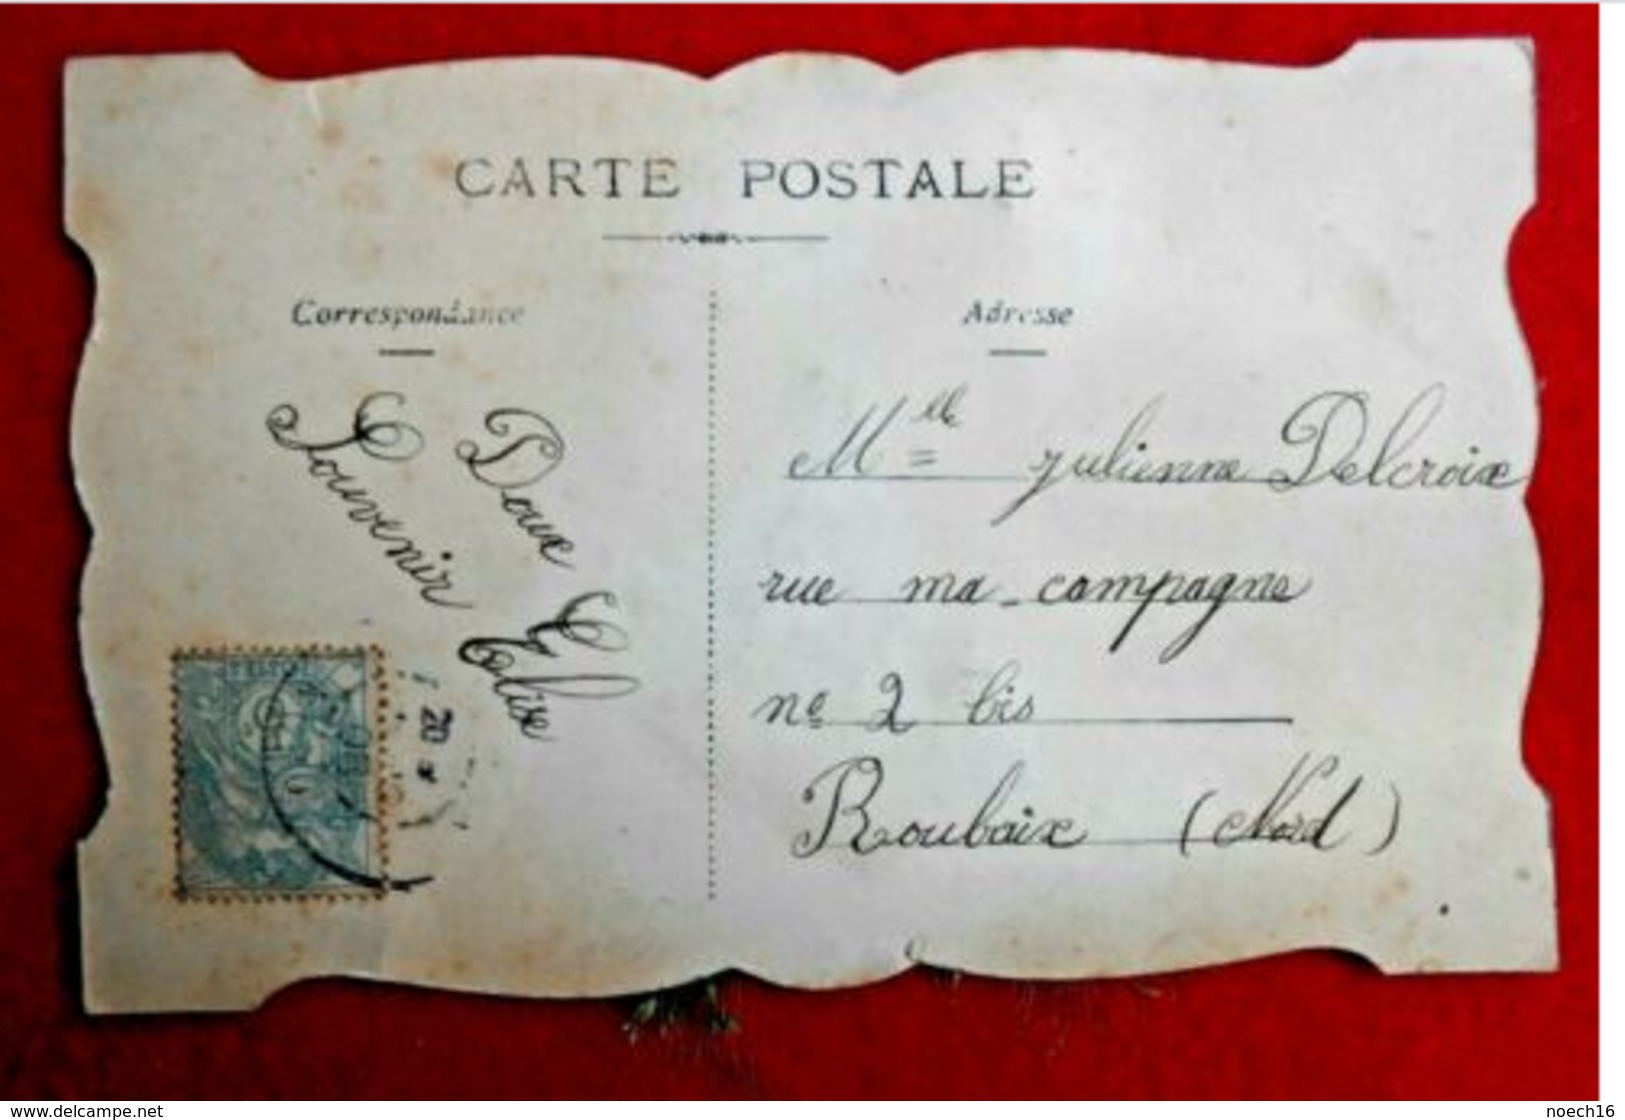 CARTE POSTALE
Correspondance
Adresse
Doux
Souvenir
Elise
Mlle julienne Delcroix
rue ma-campagne
no 2 bis
Roubaix (Nord)
20
www.delcampe.net
noech16